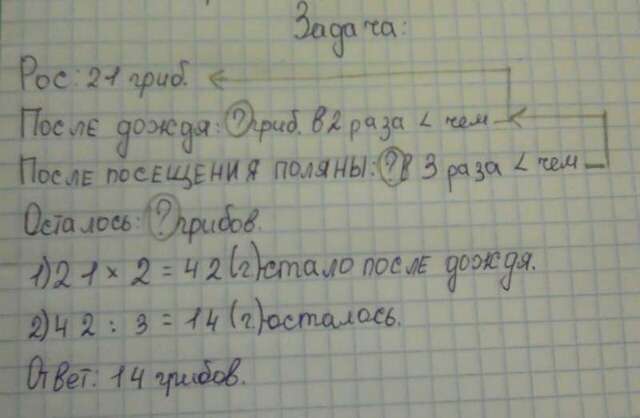 Задача:
Рос: 21 гриб.
После дождя: ? гриб. в 2 раза < чем
После посещения поляны: ? в 3 раза < чем
Осталось: ? грибов.
1) 21 × 2 = 42 (г) стало после дождя.
2) 42 : 3 = 14 (г) осталось.
Ответ: 14 грибов.